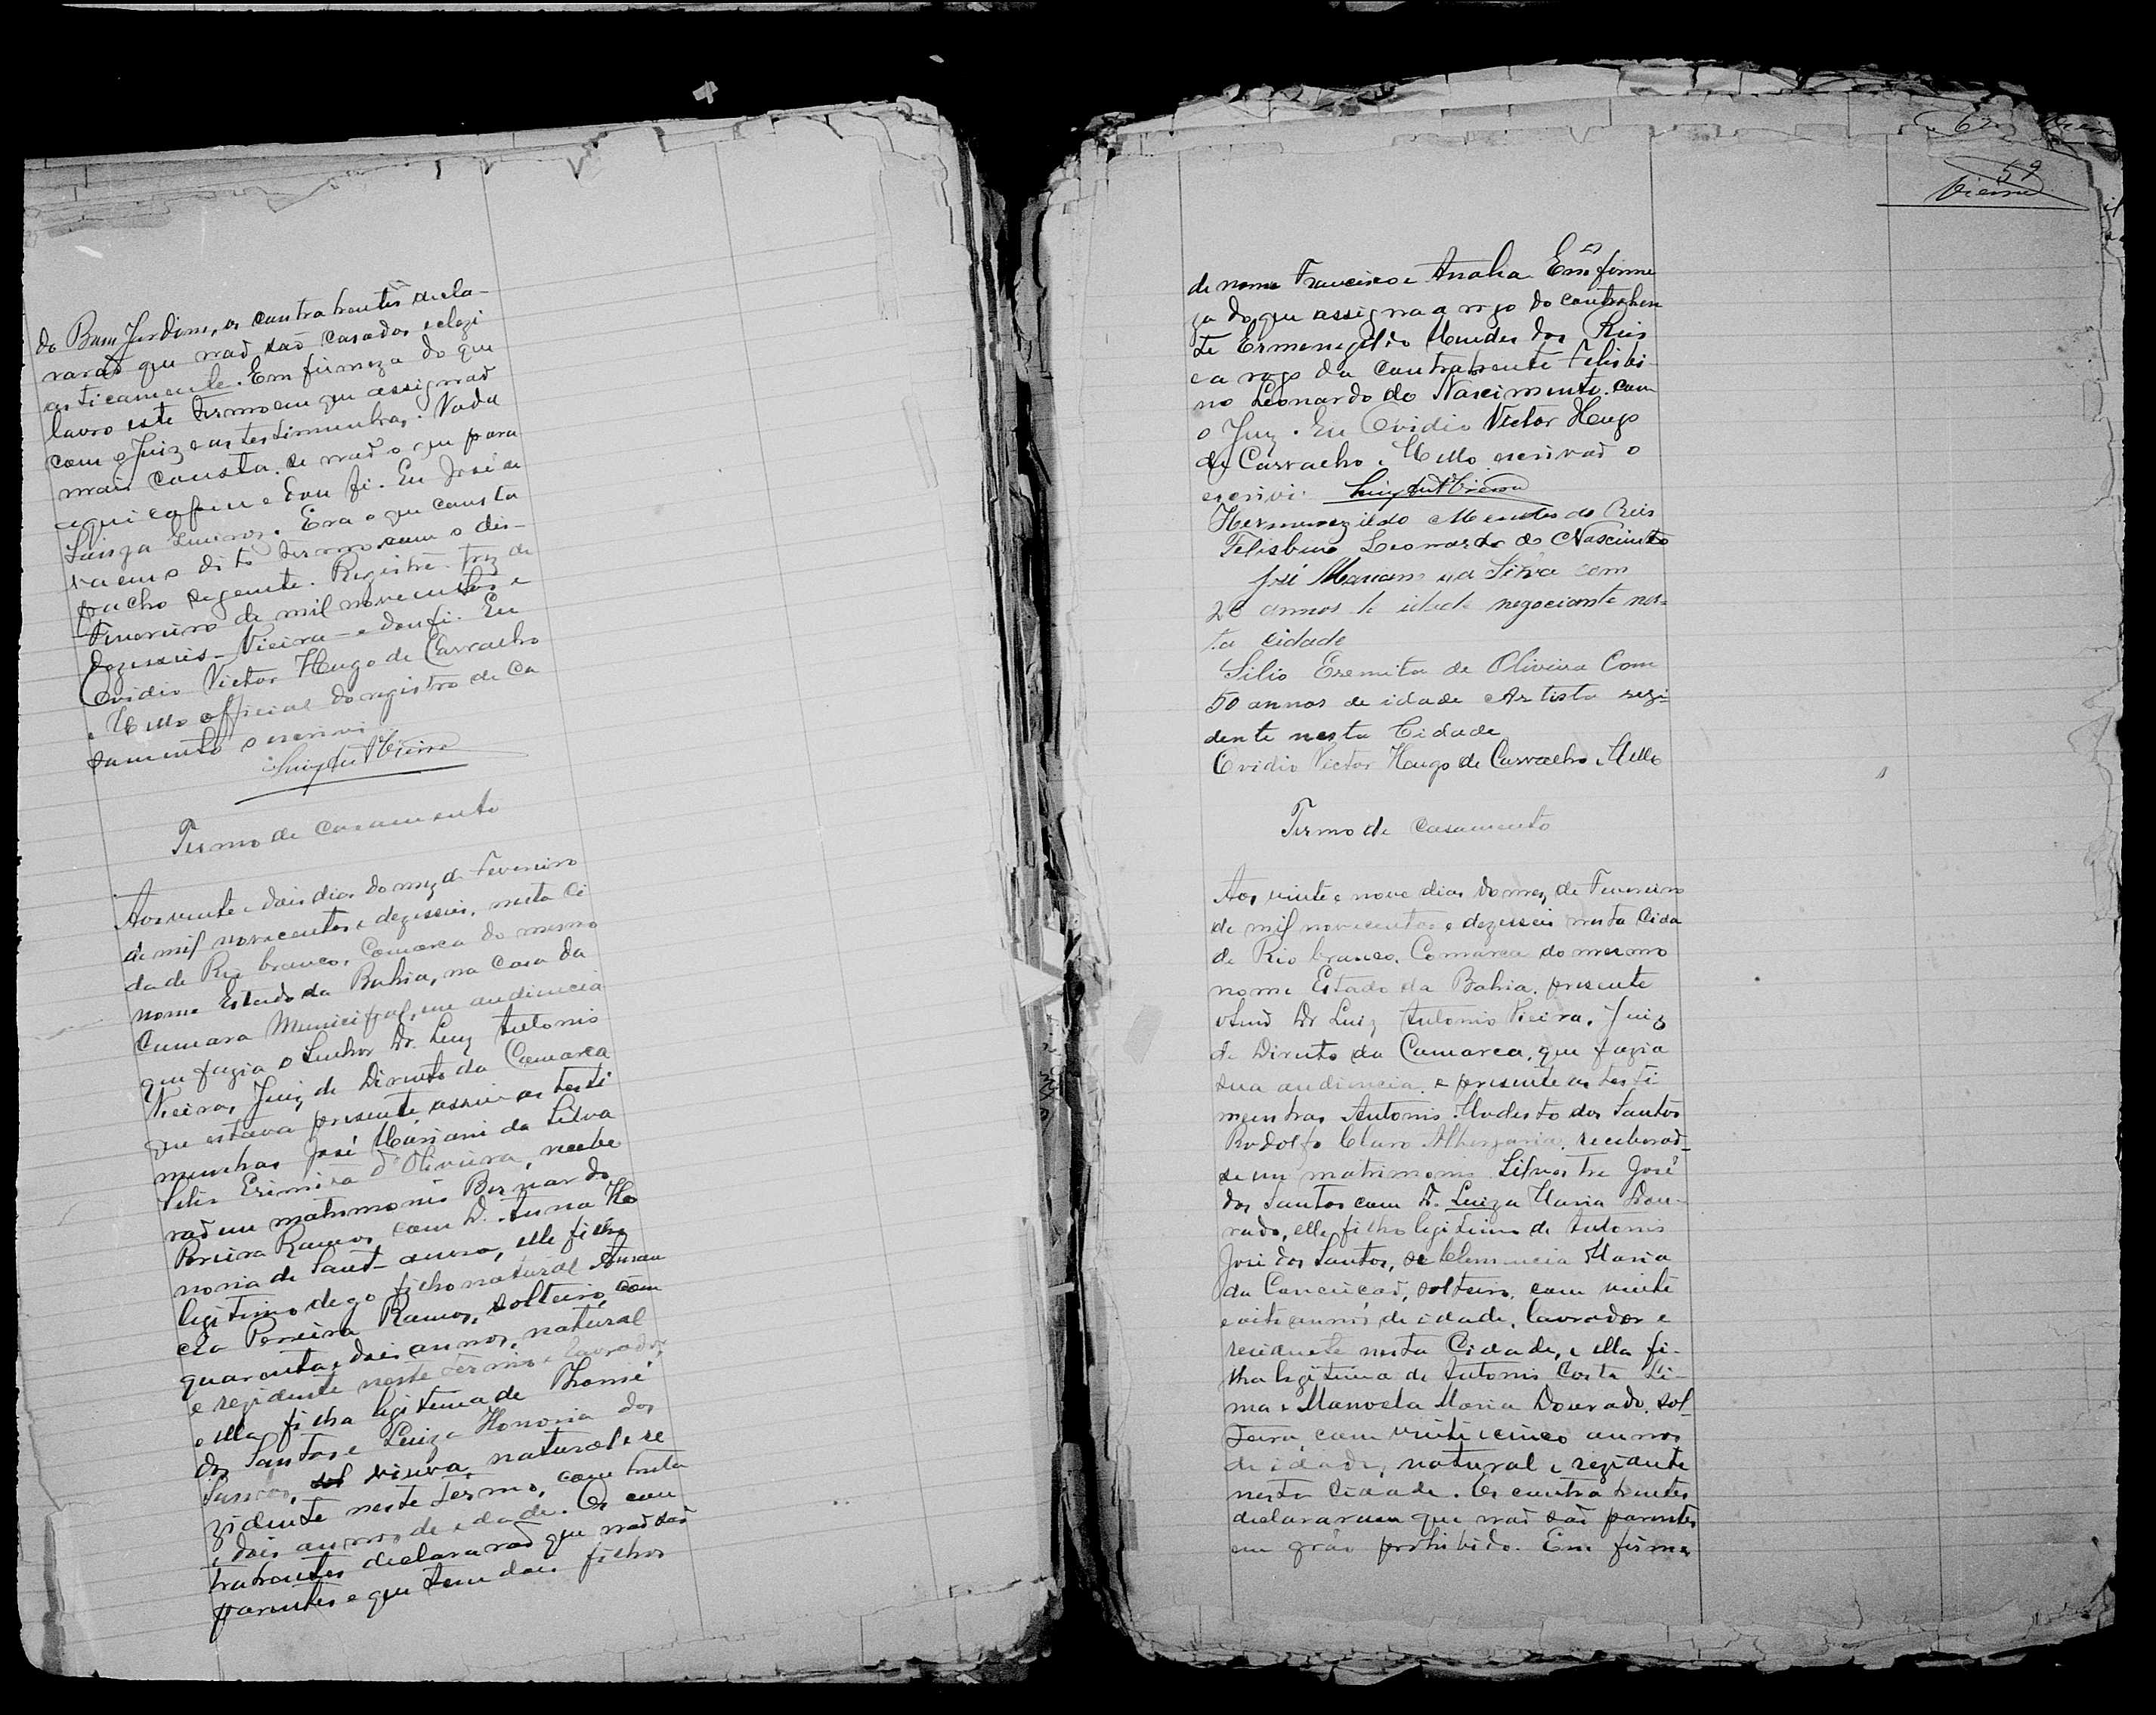 do Bom Jardim, os contrahentes decla-
rarão que não são casados eclezi
asticamente. Em firmeza do que
lavro este termo em que assignão
com o Juiz e as testimunhas. Nada
mais consta. se não o que para
aqui e dou fé. Eu José de
Era o que consta
va em o dito termo com o des-
pacho seguinte. Registre. trez de
Fevereiro de mil novecentos e
dezesseis - Vieira - e dou fé. Eu
Ovidio Victor Hugo de Carvalho
e Mello official do registro de ca
samento o escrivi
Luiz Ant Vieira
Termo de casamento
Aos vinte e dois dias do mez de Fevereiro
de mil novecentos e dezesseis, nesta Ci
dade Rio branco, Comarca do mesmo
nome Estado da Bahia, na Casa da
Camara Municipal, em audiencia
que fazia o Senhor Dr. Luiz Antonio
Vieira, Juiz de Direito da Comarca
que estava presente assim as testi
munhas José Mariani da Silva
Silio Erimita d'Oliveira, recebe
rão em matrimonio Bernardo
Pereira Ramos, com D. Anna Ho
noria de Sant-anna, elle filho
legitimo digo filho natural
Pereira Ramos, solteiro, com
quarenta e dois annos, natural
e rezidente neste termo e lavrador,
e ella filha legitima de Thomé
dos Santos e Luiza Honoria dos
Santos, sol viuva, natural e re
zidente neste termo, com trinta
e dois annos de edade. Os con
trahentes declararão que não são
parentes e que tem dois filhos
59
Vieira
de nome Francisco e Analia. Em firme
za do que assigna a rogo do contrahen
te Ermenegildo Mendes dos Reis
e a rogo da contrahente Felisbi-
no Leonardo do Nascimento. com
o Juiz. Eu Ovidio Victor Hugo
de Carvalho e Mello escrivão o
escrivi. Luiz Ant Vieira
Hermenezildo Mendes do Reis
Felisbino Leonardo do Nascimento
José Mariano da Silva com
26 annos de idade negociante nes-
ta cidade
Silio Eremita de Oliveira Com
50 annos de idade Artista rezi=
dente nesta Cidade
Ovidio Victor Hugo de Carvalho e Mello
Termo de casamento
Aos vinte e nove dias do mez de Fevereiro
de mil novecentos e dezesseis nesta Cida
de Rio branco, Comarca do mesmo
nome Estado da Bahia. presente
o Dr Luiz Antonio Vieira, Juiz
de Direito da Comarca, que fazia
sua audiencia. e presente as testi
munhas Antonio Modesto dos Santos
Rodolfo Claro Albergaria, receberão-
se em matrimonio Silvestre José
dos Santos com D. Luiza Maria Dou-
rado, elle filho legitimo de Antonio
José dos Santos, de Clemencia Maria
da Conceição, solteiro, com vinte
e oito annos de idade, lavrador e
residente nesta Cidade, e ella fi-
lha legitima de Antonio Costa Li-
ma e Manoela Maria Dourado, sol-
teira, com vinte e cinco annos
de idade, natural e rezidente
nesta Cidade. Os contrahentes
declararam que não são parentes
em gráo prohibido. Em firme